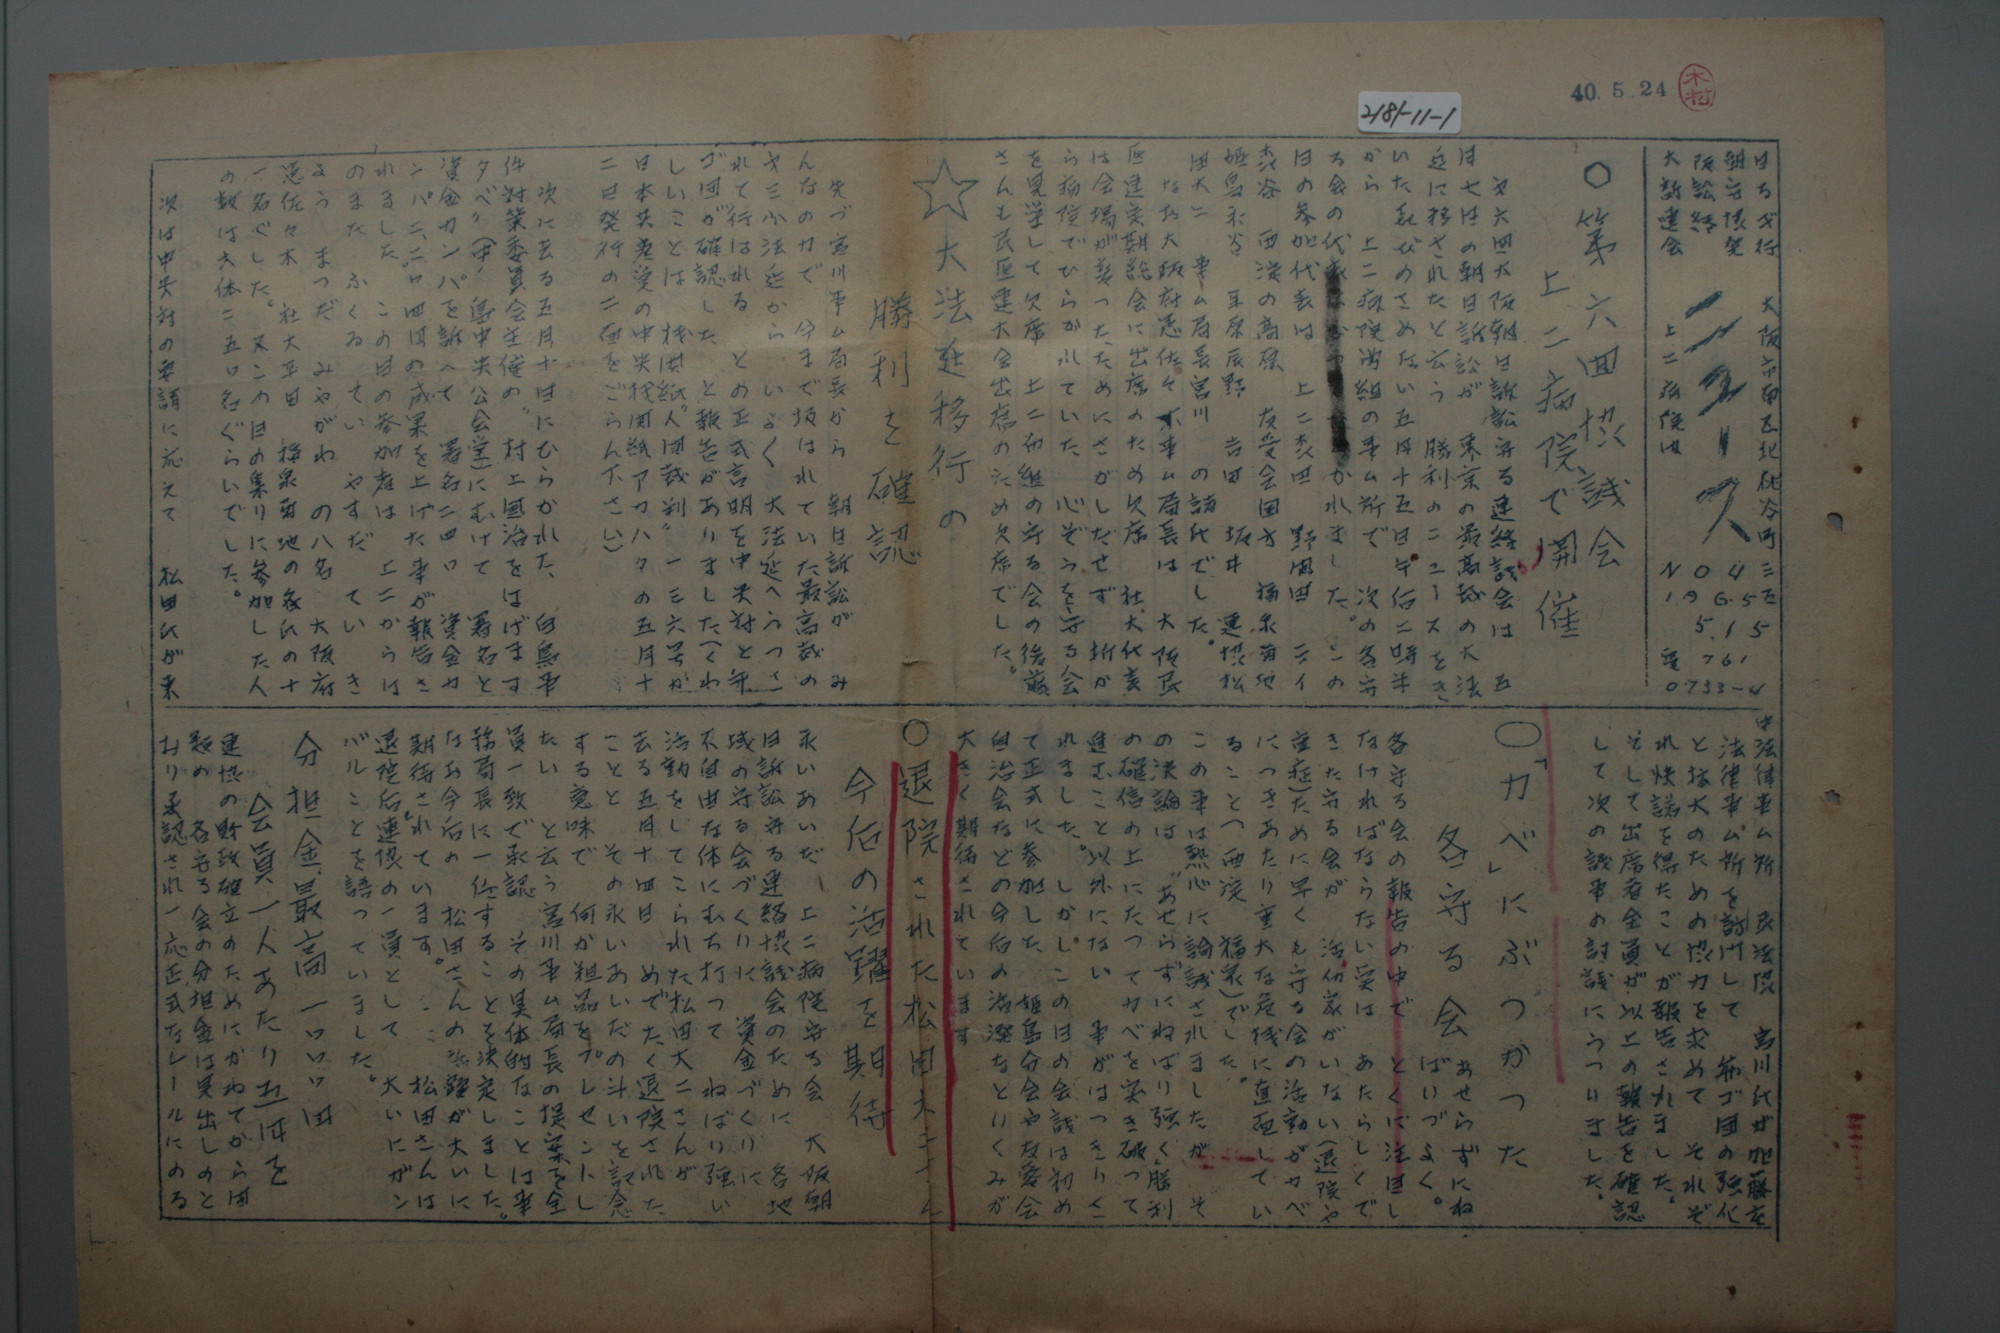 40.5.24
木松
2181-11-1
大阪市南区北桃谷町三五
上二病院内
ニュース
NO4
1965
5.15
電761
0733-4
⬡第六回協議会
上二病院で開催
次六回大阪朝日訴訟守る連絡協議会は 五
月七日の朝日訴訟が 東京の最高裁の大法
廷に移されたと云う 勝利のニュースをき
いたよろこびのさめない五月十五日午后二時半
から 上二病院労組の事ム所で 次の各守
日の参加代表は 上二松田 野間田 三イ
渋谷 西淀の高橋 友愛会国方 福泉菊地
姫島
田大二 事ム局長宮川 の諸氏でした。
なお大阪府患佐々木事ム局長は 大阪民
医連定期総会に出席のため欠席 社大代表
は会場が変つたためにさがしだせず 折か
ら病院でひらかれていた 心ぞうを守る会
を見学して欠席 上二労組の守る会の後藤
さんも民医連大会出席のため欠席でした。
☆大法廷移行の
勝利を確認
先づ宮川事ム局長から 朝日訴訟が み
んなの力で 今まで扱はれていた最高裁の
次三小法廷から いよく 大法廷へうつさ
れて行はれる との正式言明を中央対と弁
ゴ団が確認した と報告がありました(くわ
しいことは 機関紙"人間裁判"一三六号が
日本共産党の中央機関紙アカハタの五月十
二日発行の二面をごらん下さい)
次に去る五月十日にひらかれた、白鳥事
件対策委員会主催の"村上国治をはげます
夕べ"(中ノ島中央公会堂)にむけて 署名と
資金カンパを訴へて 署名二四〇 資金カ
ンパ二、二〇四円の成果を上げた事が報告さ
れました。この日の参加者は 上二からは
のまた ふくる てい やすだ てい き
よう まつだ みやがわ の八名 大阪府
患佐々木 社大平田 福泉菊地の各氏の十
一名でした。又この日の集りに参加した人
の数は大体二五〇名ぐらいでした。
次は中央対の要請に応えて 松田氏が東
中法律事ム所 民法協 宮川氏が加藤充
法律事ム所を訪門して 弁ゴ団の強化
と拡大のための協力を求めて それぞ
れ快諾を得たことが報告されました。
そして出席者全員が以上の報告を確認
して次の議事の討議にうつりました。
〇「カベ」にぶつかつた
各守る会
あせらずにね
ばりづよく。
各守る会の報告の中で とくに注目し
なければならない実は あたらしくで
きた守る会が 活仂家がいない(退院や
重症)ために早くも守る会の活動がカベ
につきあたり重大な危機に直面してい
ること(西淀 福泉)でした。
この事は熱心に論議されましたが そ
の決論は "あせらずにねばり強く"勝利
の確信の上にたつてカベを突き破つて
進むこと以外にない 事がはつきりさ
れました。しかし。この日の会議は初め
て正式に参加した 姫島分会や友愛会
自治会などの今后の活溌なとりくみが
大きく期待されています
〇退院された松田大二さん
今后の活躍を期待
永いあいだ 上二病院守る会 大阪朝
日訴訟守る連絡協議会のために 各地
域の守る会づくりに 資金づくりに
不自由な体にむち打つて ねばり強い
活動をしてこられた松田大二さんが
去る五月十四日 めでたく退院された
ことと その永いあいだの斗いを記念
する意味で 何か粗品をプレゼントし
たい と云う宮川事ム局長の提案を全
員一致で承認 その具体的なことは事
務局長に一任することを決定しました。
なお今后の 松田さんの活躍が大いに
期待されています。… 松田さんは
退院后連協の一員として 大いにガン
バルことを語っていました。
分担金最高一〇〇〇円
会員一人あたり五円を
連協の財政確立のためにかねてからは
各守る会の分担金は実出しのと
おり承認され一応正式なレールにのる